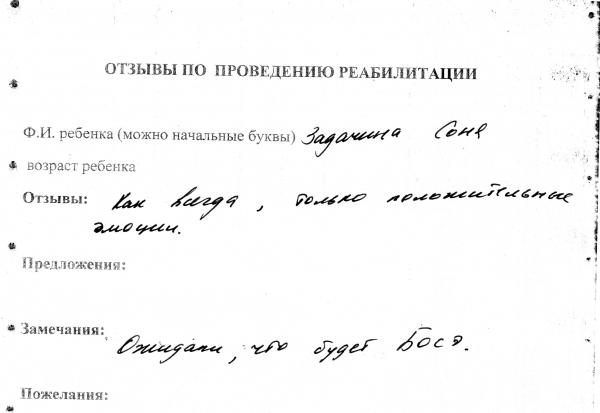 ОТЗЫВЫ ПО ПРОВЕДЕНИЮ РЕАБИЛИТАЦИИ
Ф.И. ребенка (можно начальные буквы) Задачина Соня
возраст ребенка
Отзывы: Как всегда, только положительные
эмоции.
Предложения:
Замечания:
Ожидали, что будет БОСЭ.
Пожелания: